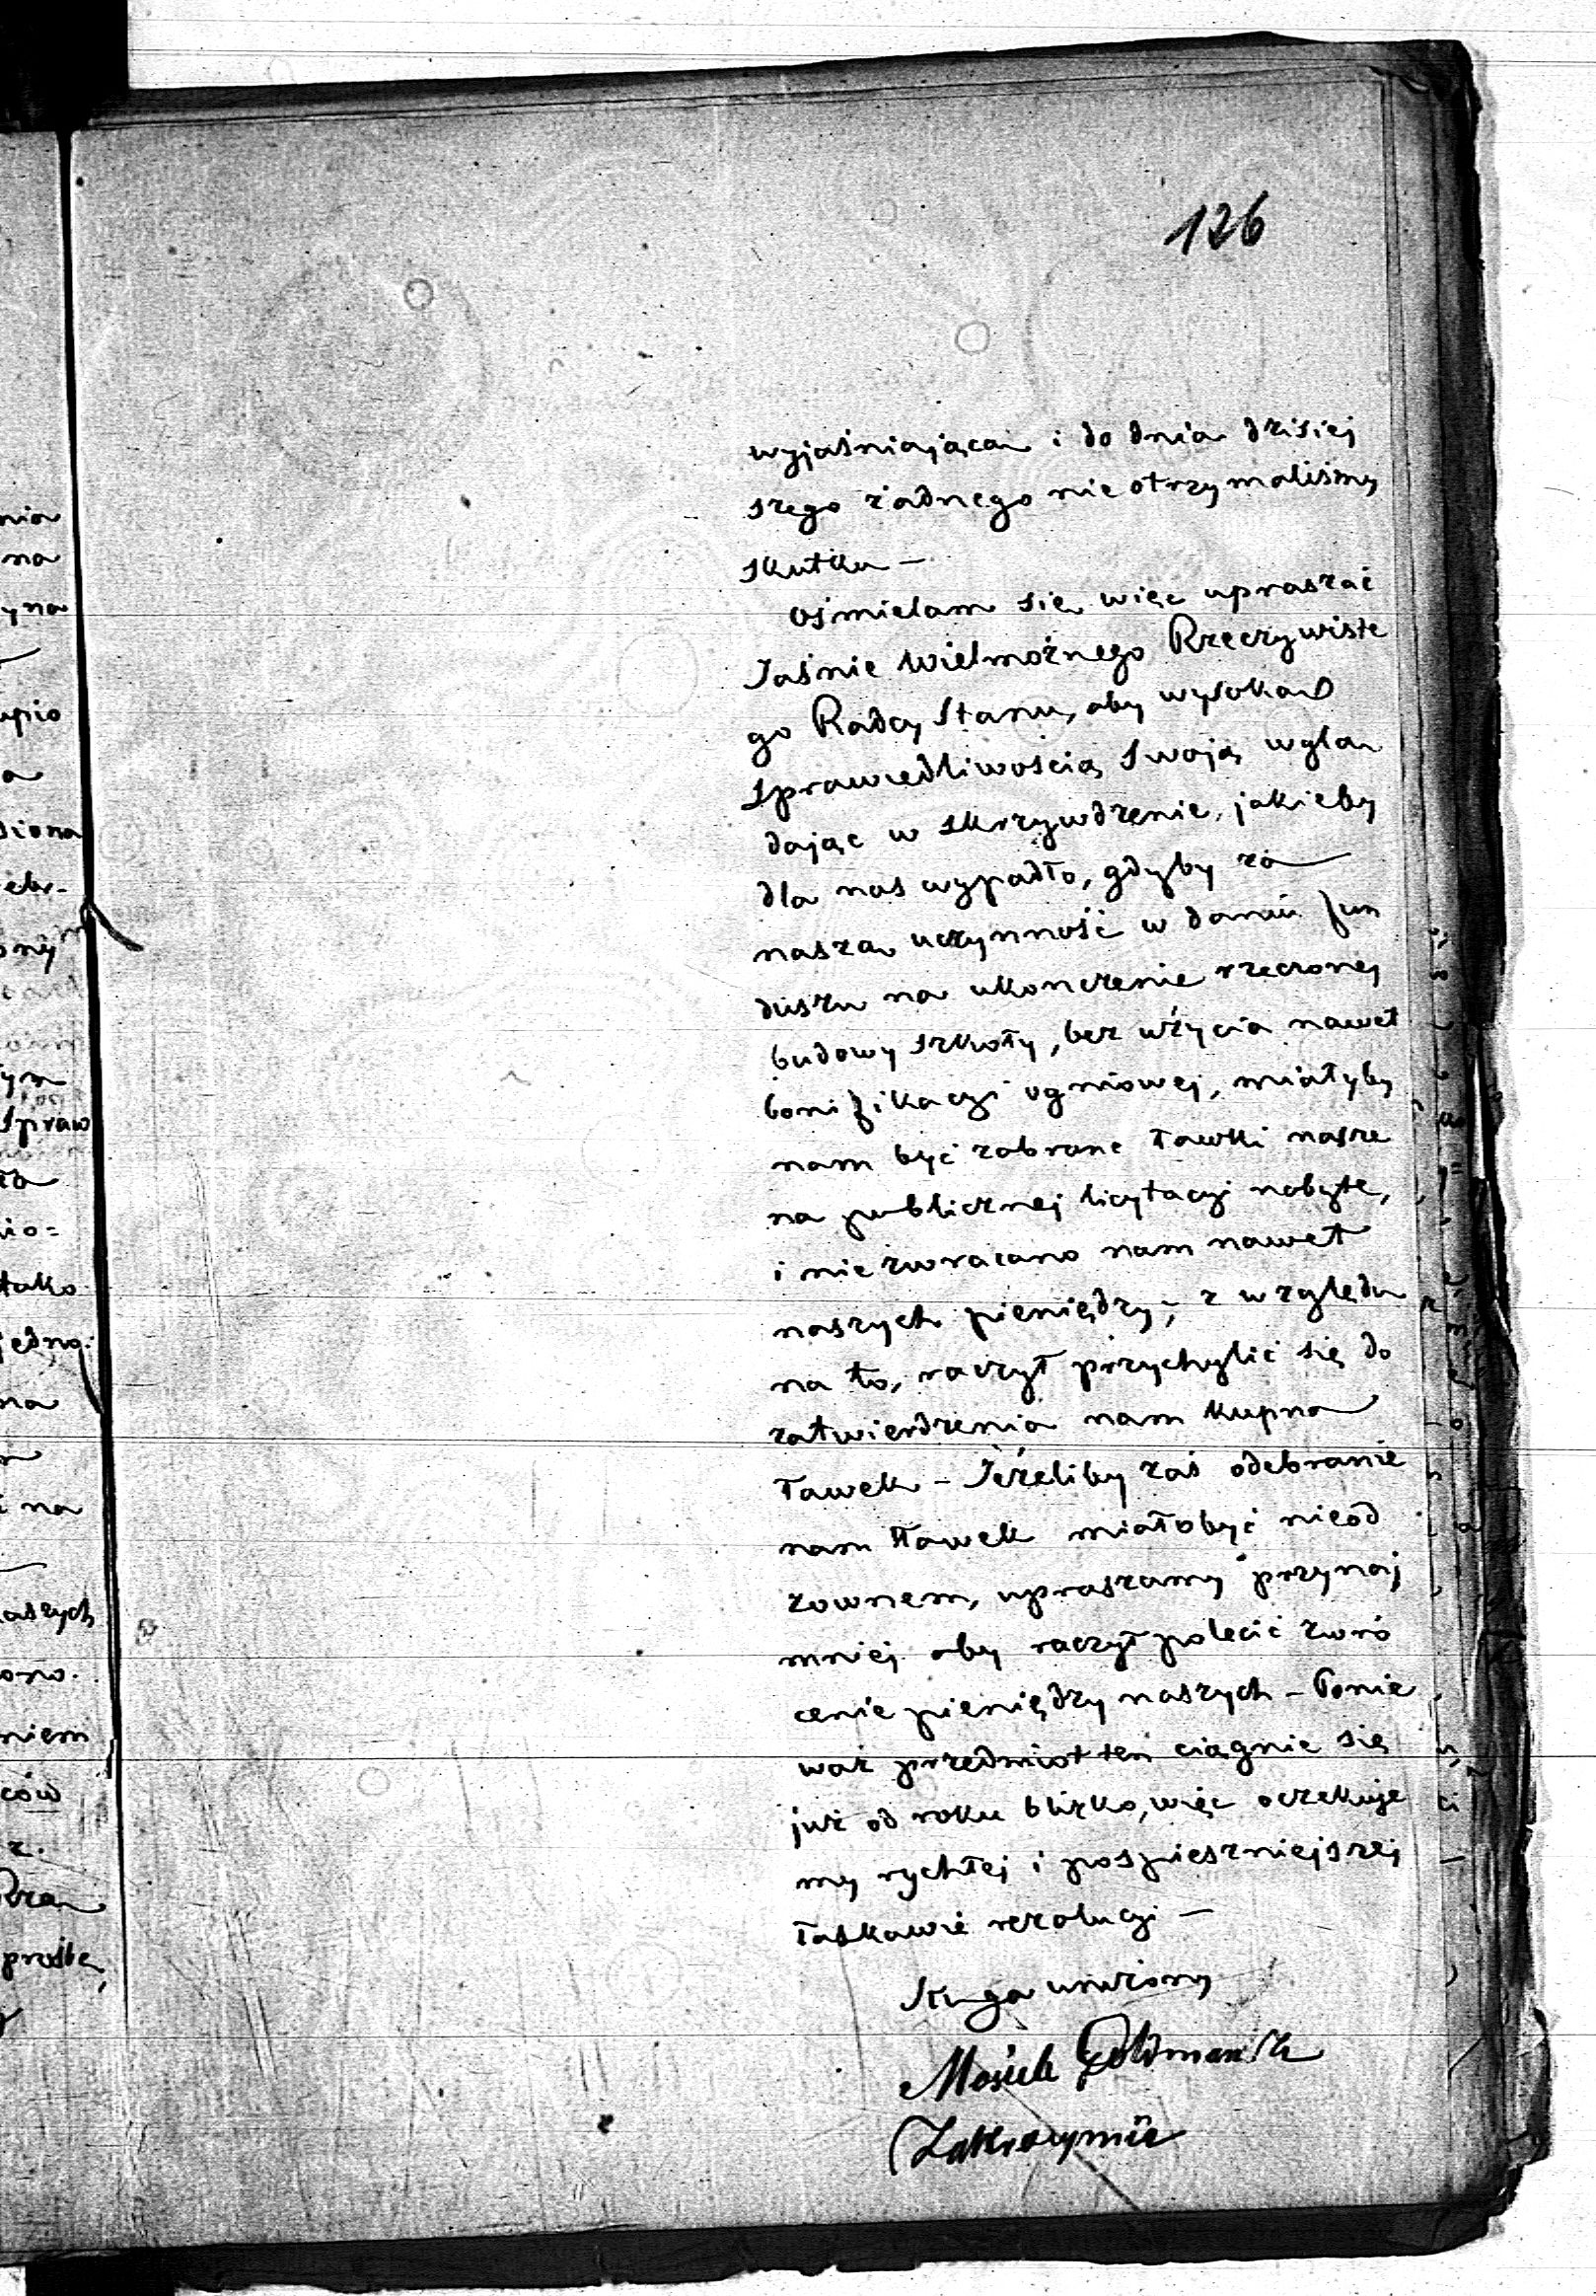 126
wyjaśniającą i do dnia dzisiej
szego żadnego nie otrzymaliśmy
skutku —
Ośmielam się więc upraszać
Jaśnie Wielmożnego Rzeczywiste
go Radcy Stanu, aby wysoką
sprawiedliwością Swoją wglą
dając w skrzywdzenie, jakieby
dla nas wypadło, gdyby za
naszą uczynność w daniu fun
duszu na ukończenie rzeczonej
budowy szkoły, bez użycia nawet
bonifikacyi ogniowej, miałyby
nam być zabrane ławki nasze
na publicznej licytacyi nabyte,
i nie zwracano nam nawet
naszych pieniędzy; z względu
na to, raczył przychylić się do
zatwierdzenia nam kupna
ławek — Jeżeliby zaś odebranie
nam ławek miało być nieod
zownem, upraszamy przynaj
mniej aby raczył polecić zwró
cenie pieniędzy naszych — Ponie
waż przedmiot ten ciągnie się
już od roku blizko, więc oczekuje
my rychłej i pospieszniejszej
łaskawie rezolucyi —
Sługa uniżony
Mosiek